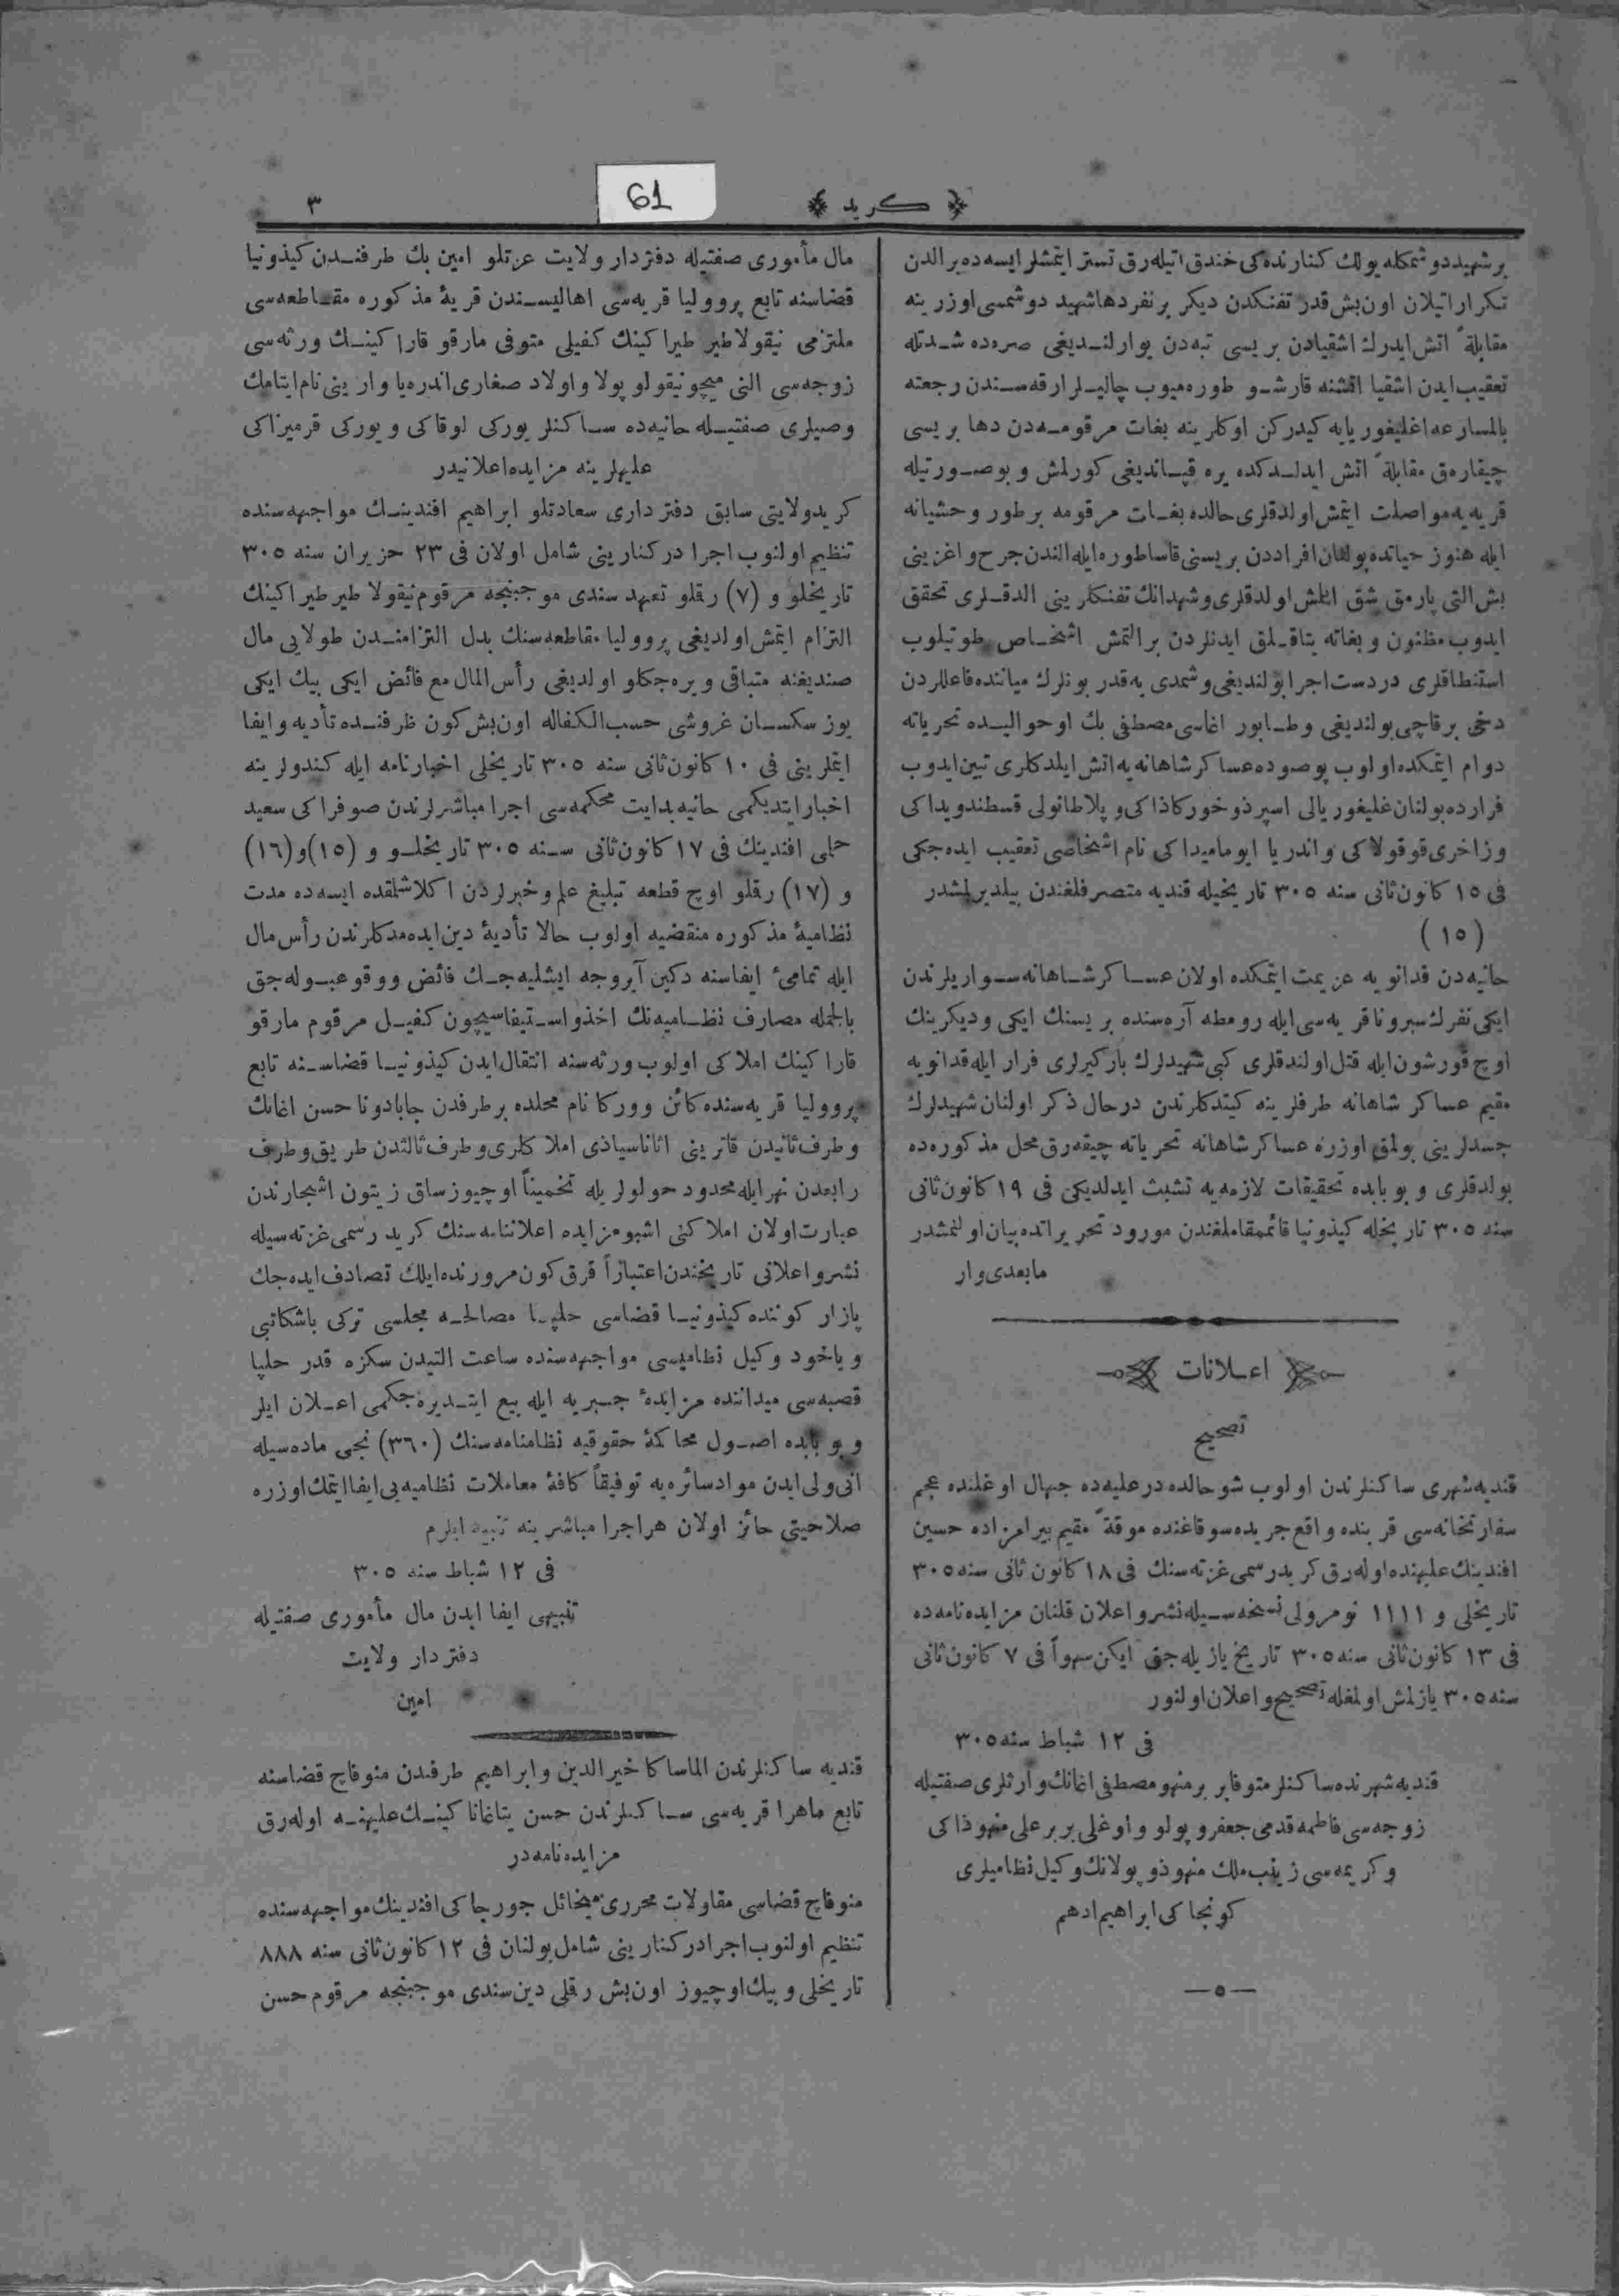 كريد
٦١
٣
بر شهيد دوشمكله يولك كنارنده كی خندق اتيله رق تستر ايتمشلر ايسه ده بر الدن
تكرار اتيلان اون بش قدر تفنكدن ديكر بر نفر دها شهيد دوشمسی اوزرينه
مقابلةً اتش ايدرك اشقيادن بريسی تپه دن يوارلنديغی صره ده شدتله
تعقيب ايدن اشقيا اتشنه قارشو طوره ميوب چاليلر ارقه سندن رجعته
بالمسارعه اغليغوريايه كيدركن اوكلرينه بغات مرقومه دن دها بريسی
چيقارەق مقابلةً اتش ايدلدكده يره قپانديغی كورلمش و بو صورتيله
قريه يه مواصلت ايتمش اولدقلری حالده بغات مرقومه بر طور وحشيانه
ايله هنوز حياتده بولنان افراددن بريسنی قاساطوره ايله الندن جرح و اغزينی
بش التی پارمق شق ايتمش اولدقلری و شهدانك تفنكلرينی الدقلری تحقق
ايدوب مظنون و بغاته يتاقلق ايدنلردن بر التمش اشخاص طوتيلوب
استنطاقلری در دست اجرا بولنديغی و شمدی يه قدر بونلرك مياننده فاعللردن
دخی بر قاچی بولنديغی و طابور اغاسی مصطفی بك او حواليده تحرياته
دوام ايتمكده اولوب پوصوده عساكر شاهانه يه اتش ايلدكلری تبين ايدوب
فرارده بولنان غليغوريالی اسپرذوخوركاذاكی و پلاطانولی قسطندويداكی
و زاخری قوقولاكی و اندريا ايومامیداكی نام اشخاصی تعقيب ايده جكی
فی ١٥ كانون ثانی سنه ٣٠٥ تاريخيله قنديه متصرفلغندن بيلديرلمشدر
( ١٥ )
حانيه دن قدانويه عزيمت ايتمكده اولان عساكر شاهانه سواريلرندن
ايكی نفرك سبرونا قريه سی ايله رومطه آره سنده بريسنك ايكی و ديكرينك
اوچ قورشون ايله قتل اولندقلری كبی شهيدلرك باركيرلری فرار ايله قدانويه
مقيم عساكر شاهانه طرفلرينه كيتدكلرندن درحال ذكر اولنان شهيدلرك
جسدلرينی بولمق اوزره عساكر شاهانه تحرياته چيقه رق محل مذكوره ده
بولدقلری و بو بابده تحقيقات لازمه يه تشبث ايدلديكی فی ١٩ كانون ثانی
سنه ٣٠٥ تاريخله كيذونيا قائممقاملغندن مورود تحريراتده بيان اولنمشدر
مابعدی وار
اعلانات
تصحيح
قنديه شهری ساكنلرندن اولوب شو حالده درعليه ده جهال اوغلنده عجم
سفارتخانه سی قربنده واقع جريده سوقاغنده موقةً مقيم بيرامزاده حسين
افندينك عليهنده اوله رق كريد رسمی غزته سنك فی ١٨ كانون ثانی سنه ٣٠٥
تاريخلی و ١١١١ نومرولی نسخه سيله نشر و اعلان قلنان مزايده نامه ده
فی ١٣ كانون ثانی سنه ٣٠٥ تاريخ يازيله جق ايكن سهواً فی ٧ كانون ثانی
سنه ٣٠٥ يازلمش اولمغله تصحيح و اعلان اولنور
فی ١٢ شباط سنه ٣٠٥
قنديه شهرنده ساكنلر متوفا بربر منهو مصطفی اغانك وارثلری صفتيله
زوجه سی فاطمه قدمی جعفروپولو و اوغلی بربر علی منهوذاكی
و كريمه سی زينب ملك منهوذوپولانك وكيل نظاميلری
كونجاكی ابراهيم ادهم
— ٥ —
مال مأموری صفتيله دفتردار ولايت عزتلو امين بك طرفندن كيذونيا
قضاسنه تابع پرووليا قريه سی اهاليسندن قريۀ مذكوره مقاطعه سی
ملتزمی نيقولا طيرطيراكينك كفيلی متوفی مارقو قاراكينك ورثه سی
زوجه سی النی ميچو نيقولوپولا و اولاد صغاری اندره يا و ارينی نام ايتامك
وصيلری صفتيله حانيه ده ساكنلر يوركی لوقاكی و يوركی قرميزاكی
عليهلرينه مزايده اعلانيدر
كريد ولايتی سابق دفترداری سعادتلو ابراهيم افندينك مواجهه سنده
تنظيم اولنوب اجرا دركنارينی شامل اولان فی ٢٣ حزيران سنه ٣٠٥
تاريخلو و (٧) رقلو تعهد سندی موجبنجه مرقوم نيقولا طيرطيراكينك
التزام ايتمش اولديغی پرووليا مقاطعه سنك بدل التزامندن طولايی مال
صنديغنه متباقی ويره جكلو اولديغی رأس المال مع فائض ايكی بيك ايكی
يوز سكسان غروشی حسب الكفاله اون بش كون ظرفنده تأديه و ايفا
ايتملرينی فی ١٠ كانون ثانی سنه ٣٠٥ تاريخلی اخبارنامه ايله كندولرينه
اخبار ايتديكمی حانيه بدايت محكمه سی اجرا مباشرلرندن صوفراكی سعيد
حلمی افندينك فی ١٧ كانون ثانی سنه ٣٠٥ تاريخلو و (١٥) و (١٦)
و (١٧) رقلو اوچ قطعه تبليغ علم و خبرلردن اكلاشلقده ايسه ده مدت
نظاميۀ مذكوره منقضيه اولوب حالا تأديۀ دين ايده مدكلرندن رأس مال
ايله تمامئ ايفاسنه دكين آيروجه ايشليه جك فائض و وقوعبوله جق
بالجمله مصارف نظاميه نك اخذ و استيفاسيچون كفيل مرقوم مارقو
قاراكينك املاكی اولوب ورثه سنه انتقال ايدن كيذونيا قضاسنه تابع
پرووليا قريه سنده كائن ووركا نام محلده بر طرفدن جابادونا حسن اغانك
و طرف ثانيدن قاترينی اناناسياذی املاكلری و طرف ثالثدن طريق و طرف
رابعدن نهر ايله محدود حولولريله تخميناً اوچيوز ساق زيتون اشجارندن
عبارت اولان املاكنی اشبو مزايده اعلاننامه سنك كريد رسمی غزته سيله
نشر و اعلانی تاريخندن اعتباراً قرق كون مرورنده ايلك تصادف ايده جك
پازار كوننده كيذونيا قضاسی حلپا مصالحه مجلسی تركی باشكاتبی
و ياخود وكيل نظاميسی مواجهه سنده ساعت التيدن سكزه قدر حلپا
قصبه سی ميداننده مزايدۀ جبريه ايله بيع ايتديره جكمی اعلان ايلر
و بو بابده اصول محاكمۀ حقوقيه نظامنامه سنك (٣٦٠) نجی ماده سيله
انی ولی ايدن مواد سائره يه توفيقاً كافۀ معاملات نظاميه يی ايفا ايتمك اوزره
صلاحيتی حائز اولان هر اجرا مباشرينه تنبيه ايلرم
فی ١٢ شباط سنه ٣٠٥
تنبيهی ايفا ايدن مال مأموری صفتيله
دفتردار ولايت
امين
قنديه ساكنلرندن الماساكا خيرالدين و ابراهيم طرفندن منوفاچ قضاسنه
تابع ماهرا قريه سی ساكنلرندن حسن يتاغاناكينك عليهنه اوله رق
مزايده نامه در
منوفاچ قضاسی مقاولات محرری ميخائل جورجاكی افندينك مواجهه سنده
تنظيم اولنوب اجرا دركنارينی شامل بولنان فی ١٢ كانون ثانی سنه ٨٨٨
تاريخلی و بيك اوچيوز اون بش رقلی دين سندی موجبنجه مرقوم حسن